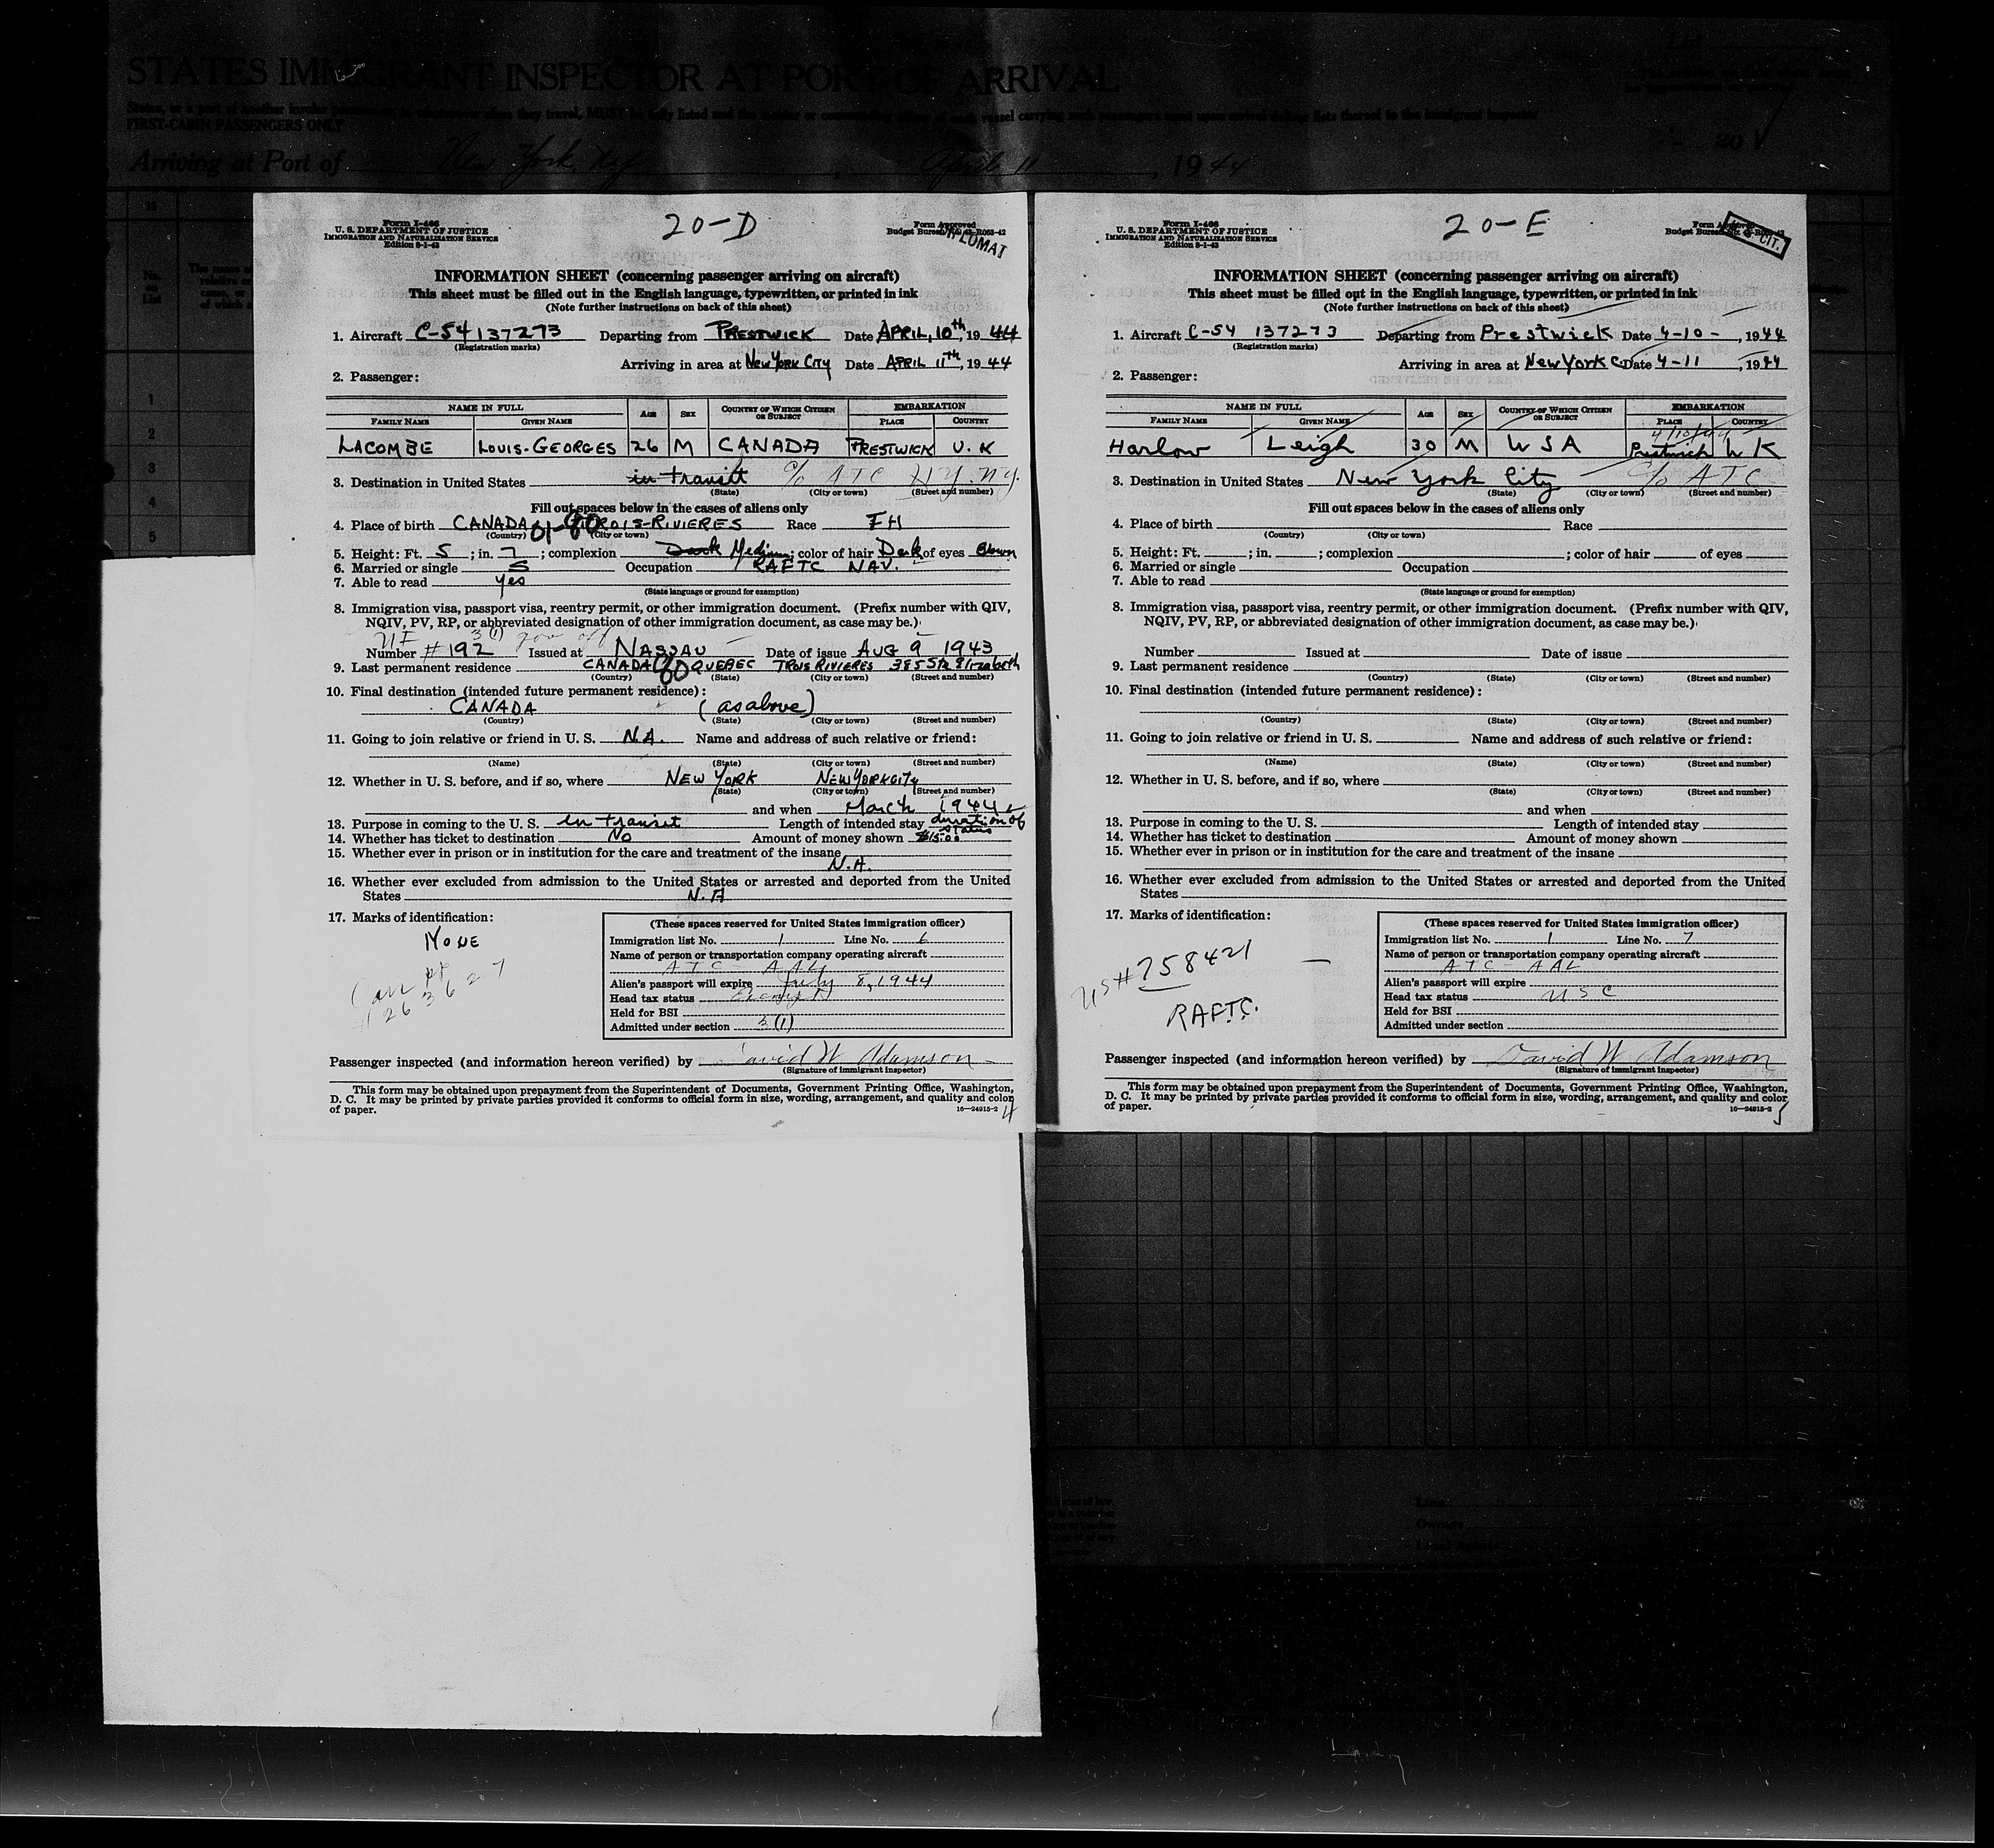 STATES IMMIGRANT INSPECTOR AT PORT OF ARRIVAL
FIRST-CABIN PASSENGERS ONLY
Arriving at Port of New York, April 11, 1944
20-D
Form I-466
U. S. DEPARTMENT OF JUSTICE
IMMIGRATION AND NATURALIZATION SERVICE
Edition 8-1-43
Form Approved
Budget Bureau No. 43-R063-42
DIPLOMAT
INFORMATION SHEET (concerning passenger arriving on aircraft)
This sheet must be filled out in the English language, typewritten, or printed in ink
(Note further instructions on back of this sheet)
1. Aircraft C-54 137273 Departing from PRESTWICK Date APRIL, 10th, 1944
(Registration marks)
Arriving in area at NEW YORK CITY Date APRIL 11th, 1944
2. Passenger:
NAME IN FULL AGE SEX COUNTRY OF WHICH CITIZEN OR SUBJECT EMBARKATION
FAMILY NAME GIVEN NAME PLACE COUNTRY
LACOMBE LOUIS-GEORGES 26 M CANADA PRESTWICK U.K
3. Destination in United States in transit c/o ATC N.Y. N.Y.
(State) (City or town) (Street and number)
Fill out spaces below in the cases of aliens only
4. Place of birth CANADA 01-80 TROIS-RIVIERES Race FH
(Country) (City or town)
5. Height: Ft. 5; in. 7; complexion Dark Medium; color of hair Dark of eyes Brown
6. Married or single S Occupation RAFTC NAV.
7. Able to read yes
(State language or ground for exemption)
8. Immigration visa, passport visa, reentry permit, or other immigration document. (Prefix number with QIV,
NQIV, PV, RP, or abbreviated designation of other immigration document, as case may be.)
3(1) gov off
Number #192 Issued at NASSAU Date of issue AUG 9 1943
9. Last permanent residence CANADA 80 QUEBEC TROIS RIVIERES 385 Ste Elizabeth
(Country) (State) (City or town) (Street and number)
10. Final destination (intended future permanent residence):
CANADA (as above)
(Country) (State) (City or town) (Street and number)
11. Going to join relative or friend in U. S. N.A. Name and address of such relative or friend:
(Name) (State) (City or town) (Street and number)
12. Whether in U. S. before, and if so, where NEW YORK NEW YORK CITY
(State) (City or town) (Street and number)
and when March 1944
13. Purpose in coming to the U. S. in transit Length of intended stay duration of status
14. Whether has ticket to destination No Amount of money shown $15.00
15. Whether ever in prison or in institution for the care and treatment of the insane
N.A.
16. Whether ever excluded from admission to the United States or arrested and deported from the United
States N.A
17. Marks of identification:
NONE
Can PP
# 263627
(These spaces reserved for United States immigration officer)
Immigration list No. 1 Line No. 6
Name of person or transportation company operating aircraft
ATC - AAL
Alien's passport will expire July 8, 1944
Head tax status Exempt
Held for BSI
Admitted under section 3(1)
Passenger inspected (and information hereon verified) by David W Adamson
(Signature of immigrant inspector)
This form may be obtained upon prepayment from the Superintendent of Documents, Government Printing Office, Washington,
D. C. It may be printed by private parties provided it conforms to official form in size, wording, arrangement, and quality and color
of paper. 16—24915-2 4
20-E
Form I-466
U. S. DEPARTMENT OF JUSTICE
IMMIGRATION AND NATURALIZATION SERVICE
Edition 8-1-43
CIT.
INFORMATION SHEET (concerning passenger arriving on aircraft)
This sheet must be filled out in the English language, typewritten, or printed in ink
(Note further instructions on back of this sheet)
1. Aircraft C-54 137273 Departing from Prestwick Date 4-10-, 1944
(Registration marks)
Arriving in area at New York C Date 4-11, 1944
2. Passenger:
NAME IN FULL AGE SEX COUNTRY OF WHICH CITIZEN OR SUBJECT EMBARKATION
FAMILY NAME GIVEN NAME PLACE COUNTRY
4/10/44
Harlow Leigh 30 M USA Prestwick UK
3. Destination in United States New York City c/o ATC
(State) (City or town) (Street and number)
Fill out spaces below in the cases of aliens only
4. Place of birth Race
(Country) (City or town)
5. Height: Ft. ; in. ; complexion ; color of hair of eyes
6. Married or single Occupation
7. Able to read
(State language or ground for exemption)
8. Immigration visa, passport visa, reentry permit, or other immigration document. (Prefix number with QIV,
NQIV, PV, RP, or abbreviated designation of other immigration document, as case may be.)
Number Issued at Date of issue
9. Last permanent residence
(Country) (State) (City or town) (Street and number)
10. Final destination (intended future permanent residence):
(Country) (State) (City or town) (Street and number)
11. Going to join relative or friend in U. S. Name and address of such relative or friend:
(Name) (State) (City or town) (Street and number)
12. Whether in U. S. before, and if so, where
(State) (City or town) (Street and number)
and when
13. Purpose in coming to the U. S. Length of intended stay
14. Whether has ticket to destination Amount of money shown
15. Whether ever in prison or in institution for the care and treatment of the insane
16. Whether ever excluded from admission to the United States or arrested and deported from the United
States
17. Marks of identification:
US# 758421
RAFTC.
(These spaces reserved for United States immigration officer)
Immigration list No. 1 Line No. 7
Name of person or transportation company operating aircraft
ATC - AAL
Alien's passport will expire
Head tax status USC
Held for BSI
Admitted under section
Passenger inspected (and information hereon verified) by David W Adamson
(Signature of immigrant inspector)
This form may be obtained upon prepayment from the Superintendent of Documents, Government Printing Office, Washington,
D. C. It may be printed by private parties provided it conforms to official form in size, wording, arrangement, and quality and color
of paper. 16—24915-2 5